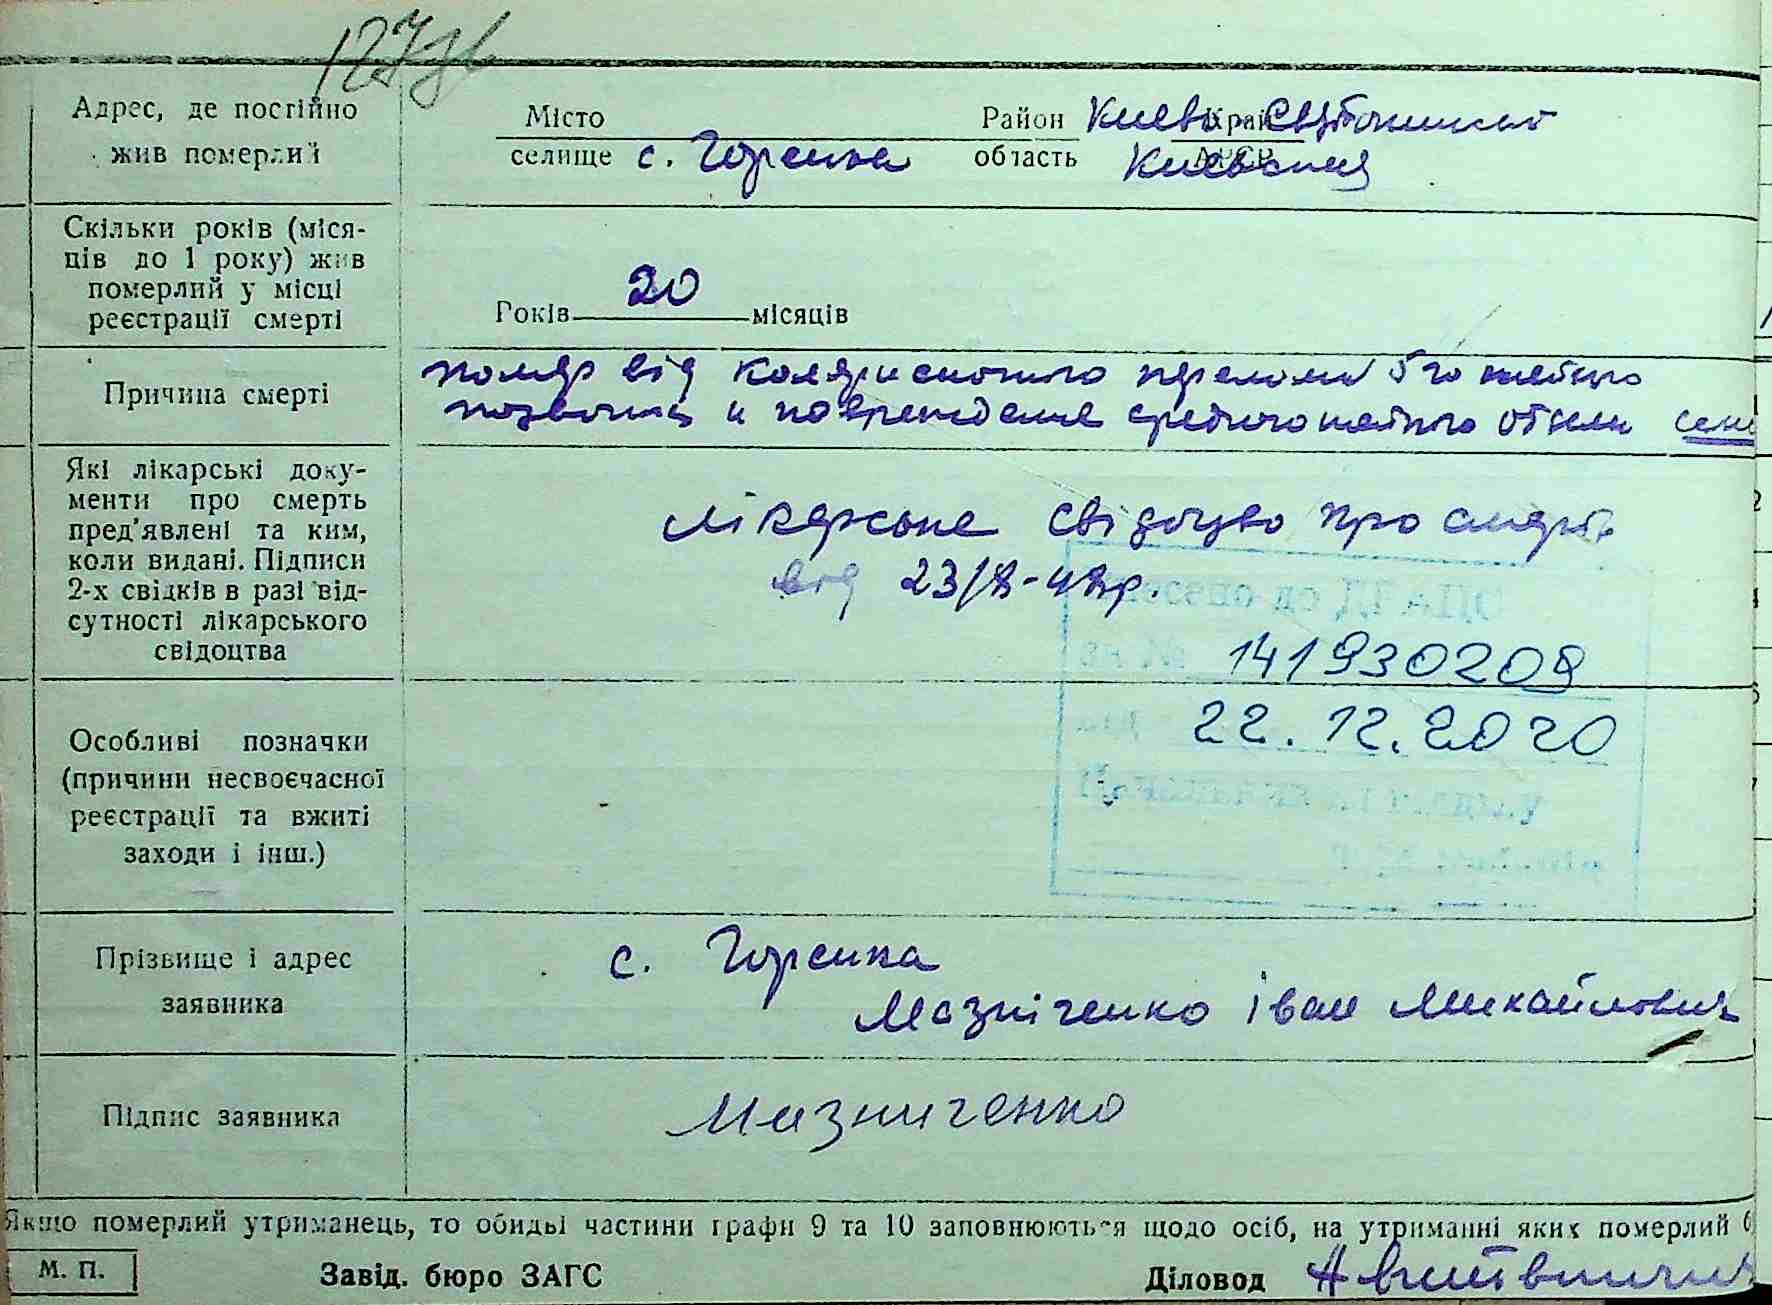 127
Адрес, де постійно
жив померлий
Місто
селище с. Горенка
Район Києво-Святошинський
Край
область Київська
АМСР
Скільки років (міся-
ців до 1 року) жив
померлий у місці
реєстрації смерті
Років 20 місяців
Причина смерті
помер від перелому 5го
и повреждение отдела
Які лікарські доку-
менти про смерть
пред'явлені та ким,
коли видані. Підписи
2-х свідків в разі від-
сутності лікарського
свідоцтва
лікарське свідоцтво про смерть
від 23/
141930209
22.12.2020
Особливі позначки
(причини несвоєчасної
реєстрації та вжиті
заходи і інш.)
Прізвище і адрес
заявника
с. Горенка
Мазніченко Іван Михайлович
Підпис заявника
Мазниченко
Якщо померлий утриманець, то обидві частини графи 9 та 10 заповнюються щодо осіб, на утриманні яких померлий
М. П.
Завід. бюро ЗАГС
Діловод